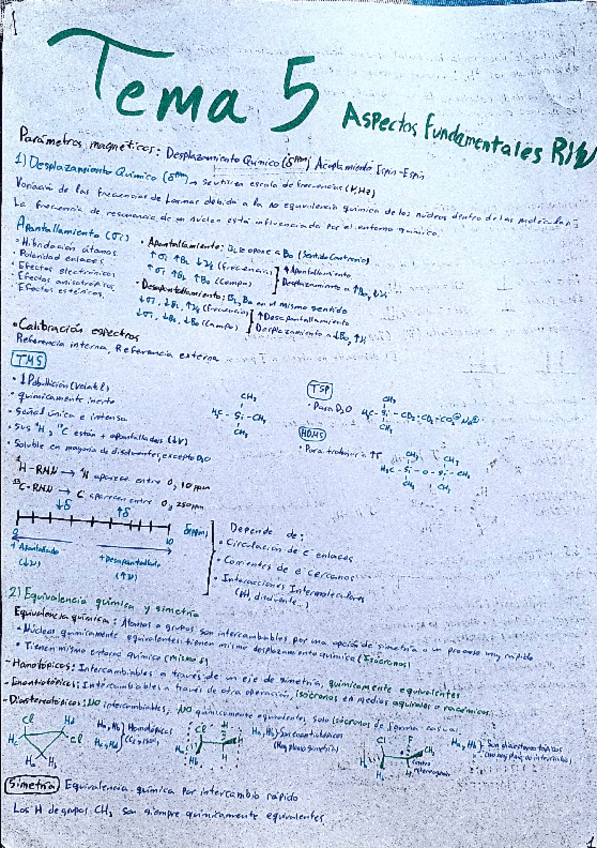 Tema 5 Aspectos Fundamentales RMN
Parámetros magnéticos: Desplazamiento Químico (δ ppm) Acoplamiento Espín-Espín
1) Desplazamiento Químico (δ ppm) → se utiliza escala de frecuencias (ν, Hz)
Variación de las frecuencias de Larmor debida a la no equivalencia química de los núcleos dentro de las moléculas
La frecuencia de resonancia de un núcleo está influenciada por el entorno químico.
Apantallamiento (σi)
• Hibridación átomos
• Polaridad enlaces
• Efectos electrónicos
• Efectos anisotrópicos
• Efectos estéricos
• Apantallamiento: se opone a B0 (Sentido Contrario)
(frecuencia)
↑ Apantallamiento
(Campo)
Desplazamiento a
• Desapantallamiento: B0 en el mismo sentido
(frecuencia)
↑ Desapantallamiento
(Campo)
Desplazamiento a
• Calibración espectros
Referencia interna, Referencia externa
TMS
• ↓ P ebullición (Volátil)
• químicamente inerte
• Señal única e intensa
• Sus ¹H y ¹³C están + apantallados (↓ν)
• Soluble en mayoría de disolventes, excepto D2O
CH3
H3C - Si - CH3
CH3
TSP
• Para D2O
CH3
H3C - Si - CD2 - CD2 - CO2⊖ Na⊕
CH3
HDMS
• Para trabajar a ↑T
CH3 CH3
H3C - Si - O - Si - CH3
CH3 CH3
¹H-RMN → ¹H aparece entre 0, 10 ppm
¹³C-RMN → C aparecen entre 0, 250 ppm
↓δ ↑δ
δ(ppm)
0 10
+ Apantallado
(↓ν)
+ Desapantallado
(↑ν)
Depende de:
• Circulación de e⁻ enlaces
• Corrientes de e⁻ cercanos
• Interacciones Intermoleculares
(pH, disolvente...)
2) Equivalencia química y simetría
Equivalencia química: Átomos o grupos son intercambiables por una opción de simetría o un proceso muy rápido
• Núcleos químicamente equivalentes: tienen mismo desplazamiento químico (Isócronos)
• Tienen mismo entorno químico (mismo δ)
- Homotópicos: Intercambiables a través de un eje de simetría, químicamente equivalentes
- Enantiotópicos: Intercambiables a través de otra operación, isócronos en medios aquirales o racémicos.
- Diastereotópicos: NO intercambiables, NO químicamente equivalentes, solo isócronos de forma casual
Cl Hd Cl
Hc Ha Hb
Ha, Hb } Homotópicos
Hc, Hd
Cl F
Ha Hb H
Ha, Hb } Son enantiotópicos
(Hay plano simetría)
Cl F CH3
Ha Hb H
Ha, Hb } Son diastereotópicos
Simetría Equivalencia química por intercambio rápido
Los H de grupos CH3 son siempre químicamente equivalentes